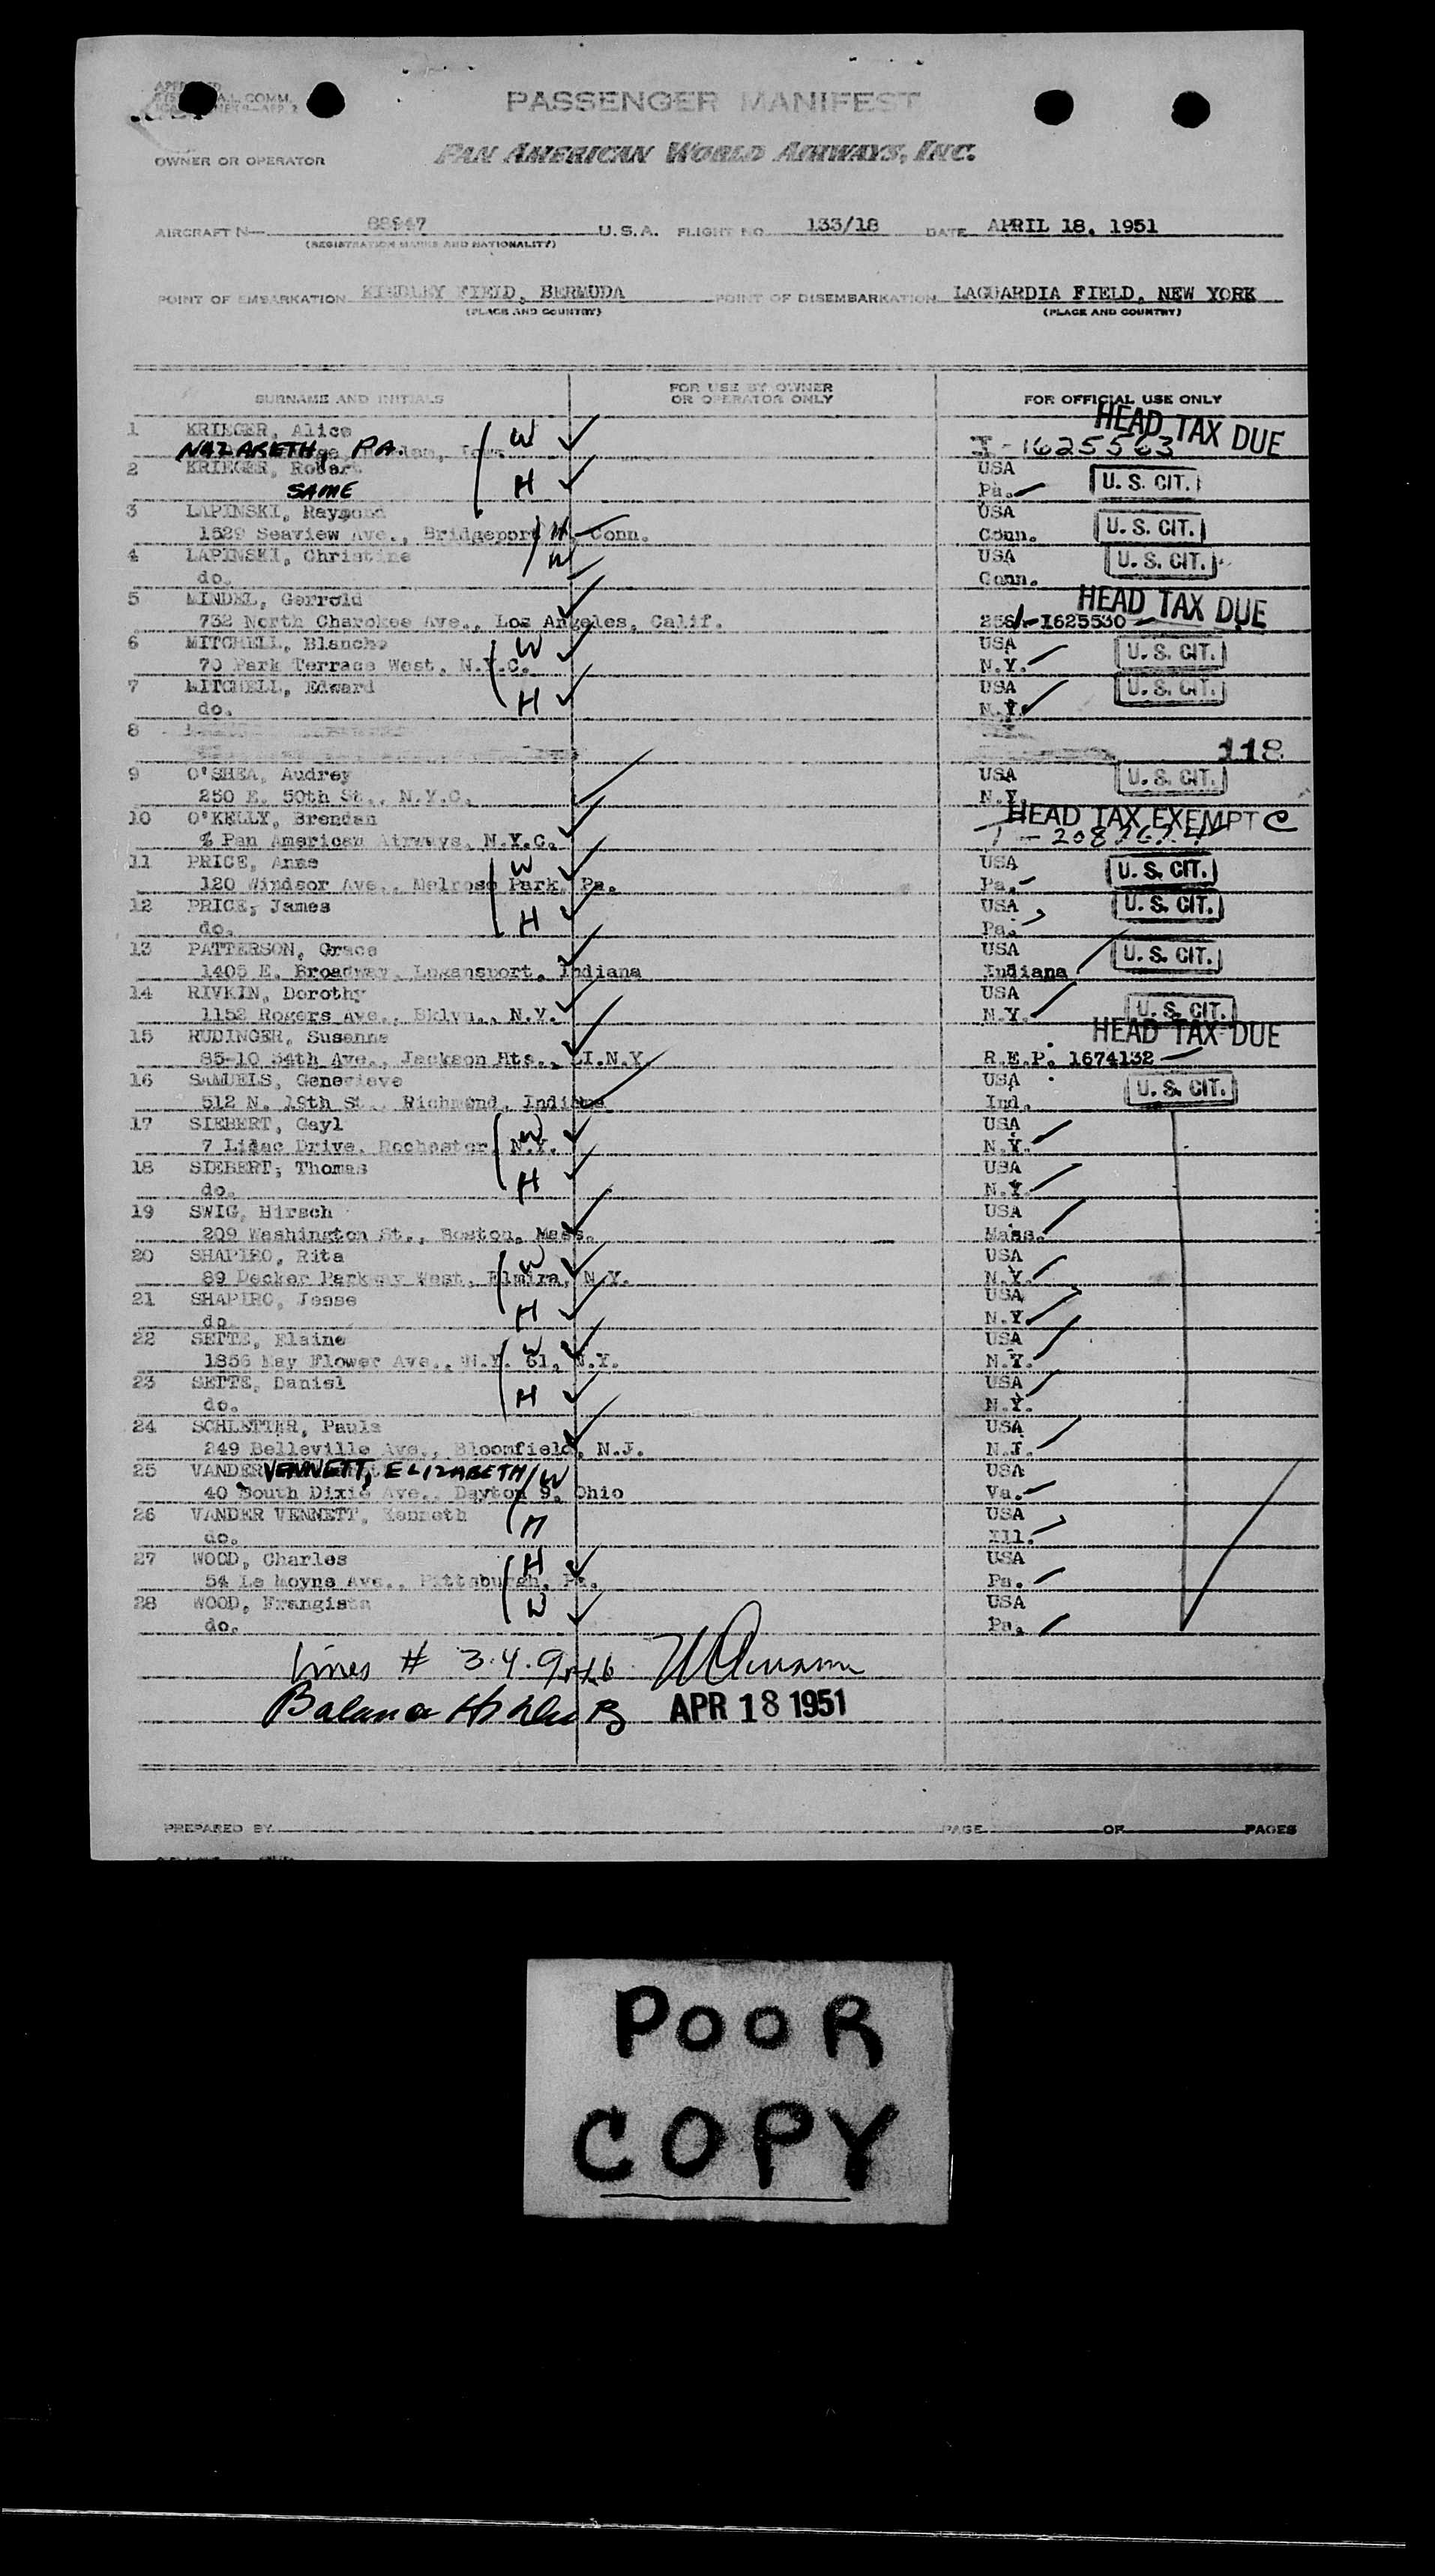 PASSENGER MANIFEST
OWNER OR OPERATOR PAN AMERICAN WORLD AIRWAYS, INC.
AIRCRAFT N— 88947 U.S.A. FLIGHT NO. 133/18 DATE APRIL 18, 1951
(REGISTRATION MARKS AND NATIONALITY)
POINT OF EMBARKATION KINDLEY FIELD, BERMUDA POINT OF DISEMBARKATION LAGUARDIA FIELD, NEW YORK
(PLACE AND COUNTRY) (PLACE AND COUNTRY)
SURNAME AND INITIALS FOR USE BY OWNER OR OPERATOR ONLY FOR OFFICIAL USE ONLY
1 KRIEGER, Alice W HEAD TAX DUE
NAZARETH, PA. I-1625563
2 KRIEGER, Robert H USA U. S. CIT.
SAME Pa.
3 LAPINSKI, Raymond USA U. S. CIT.
1529 Seaview Ave., Bridgeport, Conn. H Conn.
4 LAPINSKI, Christine W USA U. S. CIT.
do. Conn.
5 MINDEL, Gerrold HEAD TAX DUE
732 North Cherokee Ave., Los Angeles, Calif. I625530
6 MITCHELL, Blanche W USA U. S. CIT.
70 Park Terrace West, N.Y.C. N.Y.
7 MITCHELL, Edward H USA U. S. CIT.
do. N.Y.
8
118
9 O'SHEA, Audrey USA U. S. CIT.
250 E. 50th St., N.Y.C. N.Y.
10 O'KELLY, Brendan HEAD TAX EXEMPT C
% Pan American Airways, N.Y.C.
11 PRICE, Anne W USA U. S. CIT.
120 Windsor Ave., Melrose Park, Pa. Pa.
12 PRICE, James H USA U. S. CIT.
do. Pa.
13 PATTERSON, Grace USA U. S. CIT.
1405 E. Broadway, Logansport, Indiana Indiana
14 RIVKIN, Dorothy USA U. S. CIT.
1152 Rogers Ave., Bklyn., N.Y. N.Y.
15 RUDINGER, Susanne HEAD TAX DUE
85-10 34th Ave., Jackson Hts., LI.N.Y. R.E.P. 1674132
16 SAMUELS, Genevieve USA U. S. CIT.
512 N. 19th St., Richmond, Indiana Ind.
17 SIEBERT, Gayl W USA
7 Lilac Drive, Rochester, N.Y. N.Y.
18 SIEBERT, Thomas H USA
do. N.Y.
19 SWIG, Hirsch USA
209 Washington St., Boston, Mass. Mass.
20 SHAPIRO, Rita W USA
89 Decker Parkway West, Elmira, N.Y. N.Y.
21 SHAPIRO, Jesse H USA
do N.Y.
22 SETTE, Elaine W USA
1856 May Flower Ave., N.Y. 61, N.Y. N.Y.
23 SETTE, Daniel H USA
do. N.Y.
24 SCHLETTER, Paula USA
249 Belleville Ave., Bloomfield, N.J. N.J.
25 VANDER VENNETT, ELIZABETH W USA
40 South Dixie Ave., Dayton 9, Ohio Va.
26 VANDER VENNETT, Kenneth H USA
do. Ill.
27 WOOD, Charles H USA
54 Le Moyne Ave., Pittsburgh, Pa. Pa.
28 WOOD, Frangista W USA
do. Pa.
Lines # 3.4.9
Balance APR 18 1951
PREPARED BY PAGE OF PAGES
POOR
COPY